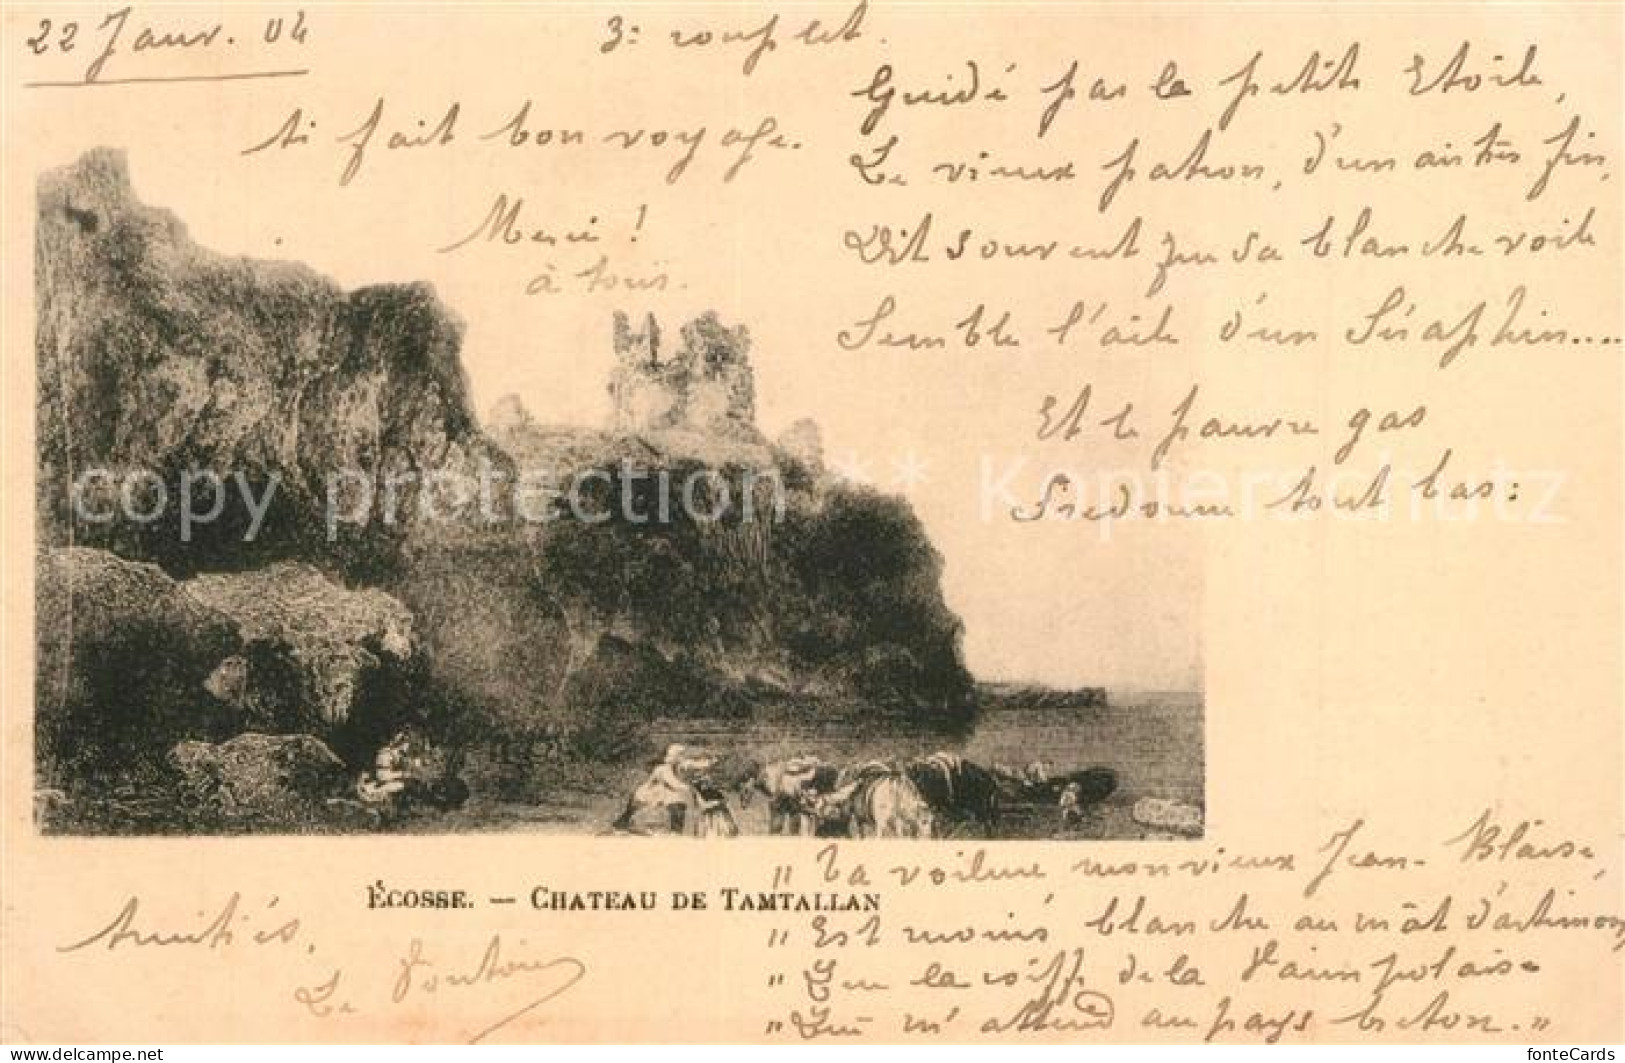 22 Janv. 04
3: couplet.
ti fait bon voyage.
Merci !
à tous.
Guidé par la petite Etoile,
Le vieux patron, d'un air très fin,
Dit souvent que sa blanche voile
Semble l'aile d'un Séraphin....
Et le pauvre gas
Fredonne tout bas :
copy protection ** Kopierschutz
" Ta voilure mon vieux Jean-Blaise,
" Est moins blanche au mât d'artimon
" Que la coiffe de la Paimpolaise
" Qui m'attend au pays breton. "
ÉCOSSE. — CHATEAU DE TAMTALLAN
Amitiés,
Le
https://www.delcampe.net
fonteCards